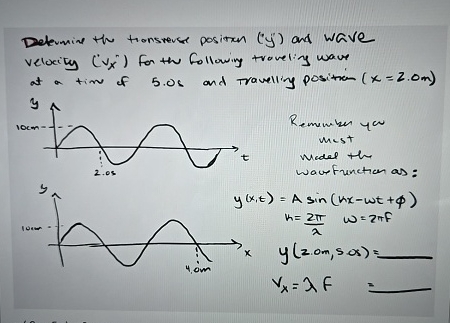 Determine the transverse position ("y") and wave
velocity ("Vx") for the following traveling wave
at a time of 5.0s and travelling position (x = 2.0m)
y
10cm
t
2.0s
Remember you
must
model the
wavefunction as:
y
10cm
x
4.0m
y(x,t) = A sin(kx-wt+φ)
k = 2π/λ w = 2πf
y(2.0m, 5.0s) = ____
Vx = λ F = ____